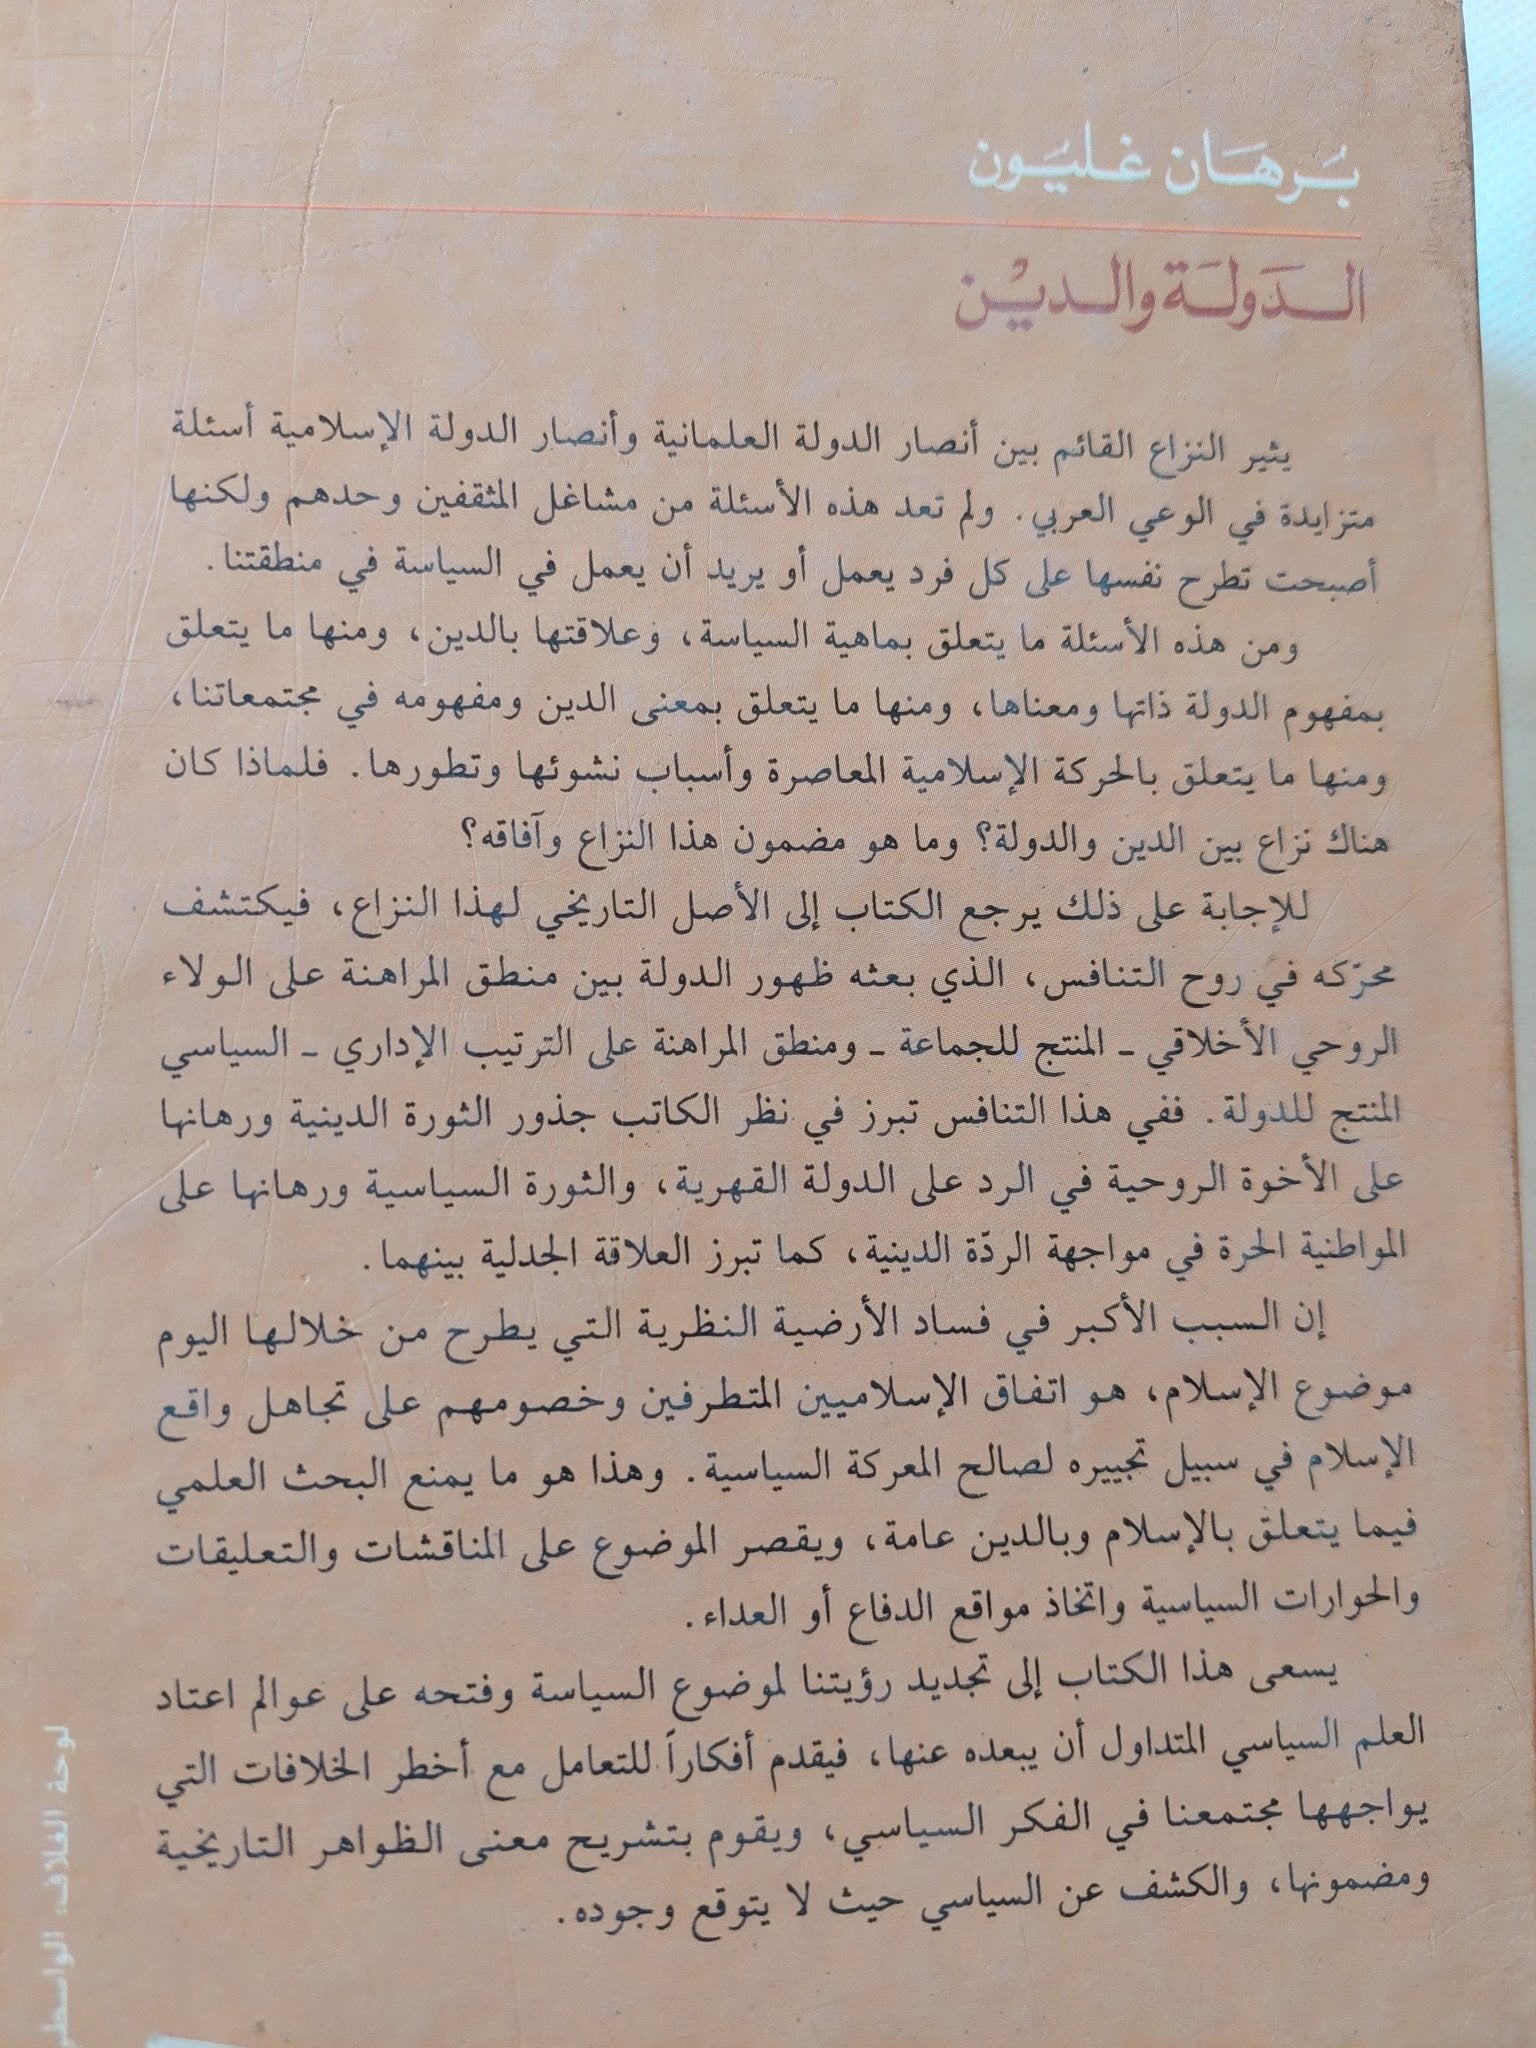 بُرهَان غليُون
الدَولَة والديْن
يثير النزاع القائم بين أنصار الدولة العلمانية وأنصار الدولة الإسلامية أسئلة
متزايدة في الوعي العربي. ولم تعد هذه الأسئلة من مشاغل المثقفين وحدهم ولكنها
أصبحت تطرح نفسها على كل فرد يعمل أو يريد أن يعمل في السياسة في منطقتنا.
ومن هذه الأسئلة ما يتعلق بماهية السياسة، وعلاقتها بالدين، ومنها ما يتعلق
بمفهوم الدولة ذاتها ومعناها، ومنها ما يتعلق بمعنى الدين ومفهومه في مجتمعاتنا،
ومنها ما يتعلق بالحركة الإسلامية المعاصرة وأسباب نشوئها وتطورها. فلماذا كان
هناك نزاع بين الدين والدولة؟ وما هو مضمون هذا النزاع وآفاقه؟
للإجابة على ذلك يرجع الكتاب إلى الأصل التاريخي لهذا النزاع، فيكتشف
محرّكه في روح التنافس، الذي بعثه ظهور الدولة بين منطق المراهنة على الولاء
الروحي الأخلاقي ـ المنتج للجماعة ـ ومنطق المراهنة على الترتيب الإداري ـ السياسي
المنتج للدولة. ففي هذا التنافس تبرز في نظر الكاتب جذور الثورة الدينية ورهانها
على الأخوة الروحية في الرد على الدولة القهرية، والثورة السياسية ورهانها على
المواطنية الحرة في مواجهة الردّة الدينية، كما تبرز العلاقة الجدلية بينهما.
إن السبب الأكبر في فساد الأرضية النظرية التي يطرح من خلالها اليوم
موضوع الإسلام، هو اتفاق الإسلاميين المتطرفين وخصومهم على تجاهل واقع
الإسلام في سبيل تجييره لصالح المعركة السياسية. وهذا هو ما يمنع البحث العلمي
فيما يتعلق بالإسلام وبالدين عامة، ويقصر الموضوع على المناقشات والتعليقات
والحوارات السياسية واتخاذ مواقع الدفاع أو العداء.
يسعى هذا الكتاب إلى تجديد رؤيتنا لموضوع السياسة وفتحه على عوالم اعتاد
العلم السياسي المتداول أن يبعده عنها، فيقدم أفكاراً للتعامل مع أخطر الخلافات التي
يواجهها مجتمعنا في الفكر السياسي، ويقوم بتشريح معنى الظواهر التاريخية
ومضمونها، والكشف عن السياسي حيث لا يتوقع وجوده.
لوحة الغلاف: الواسطي